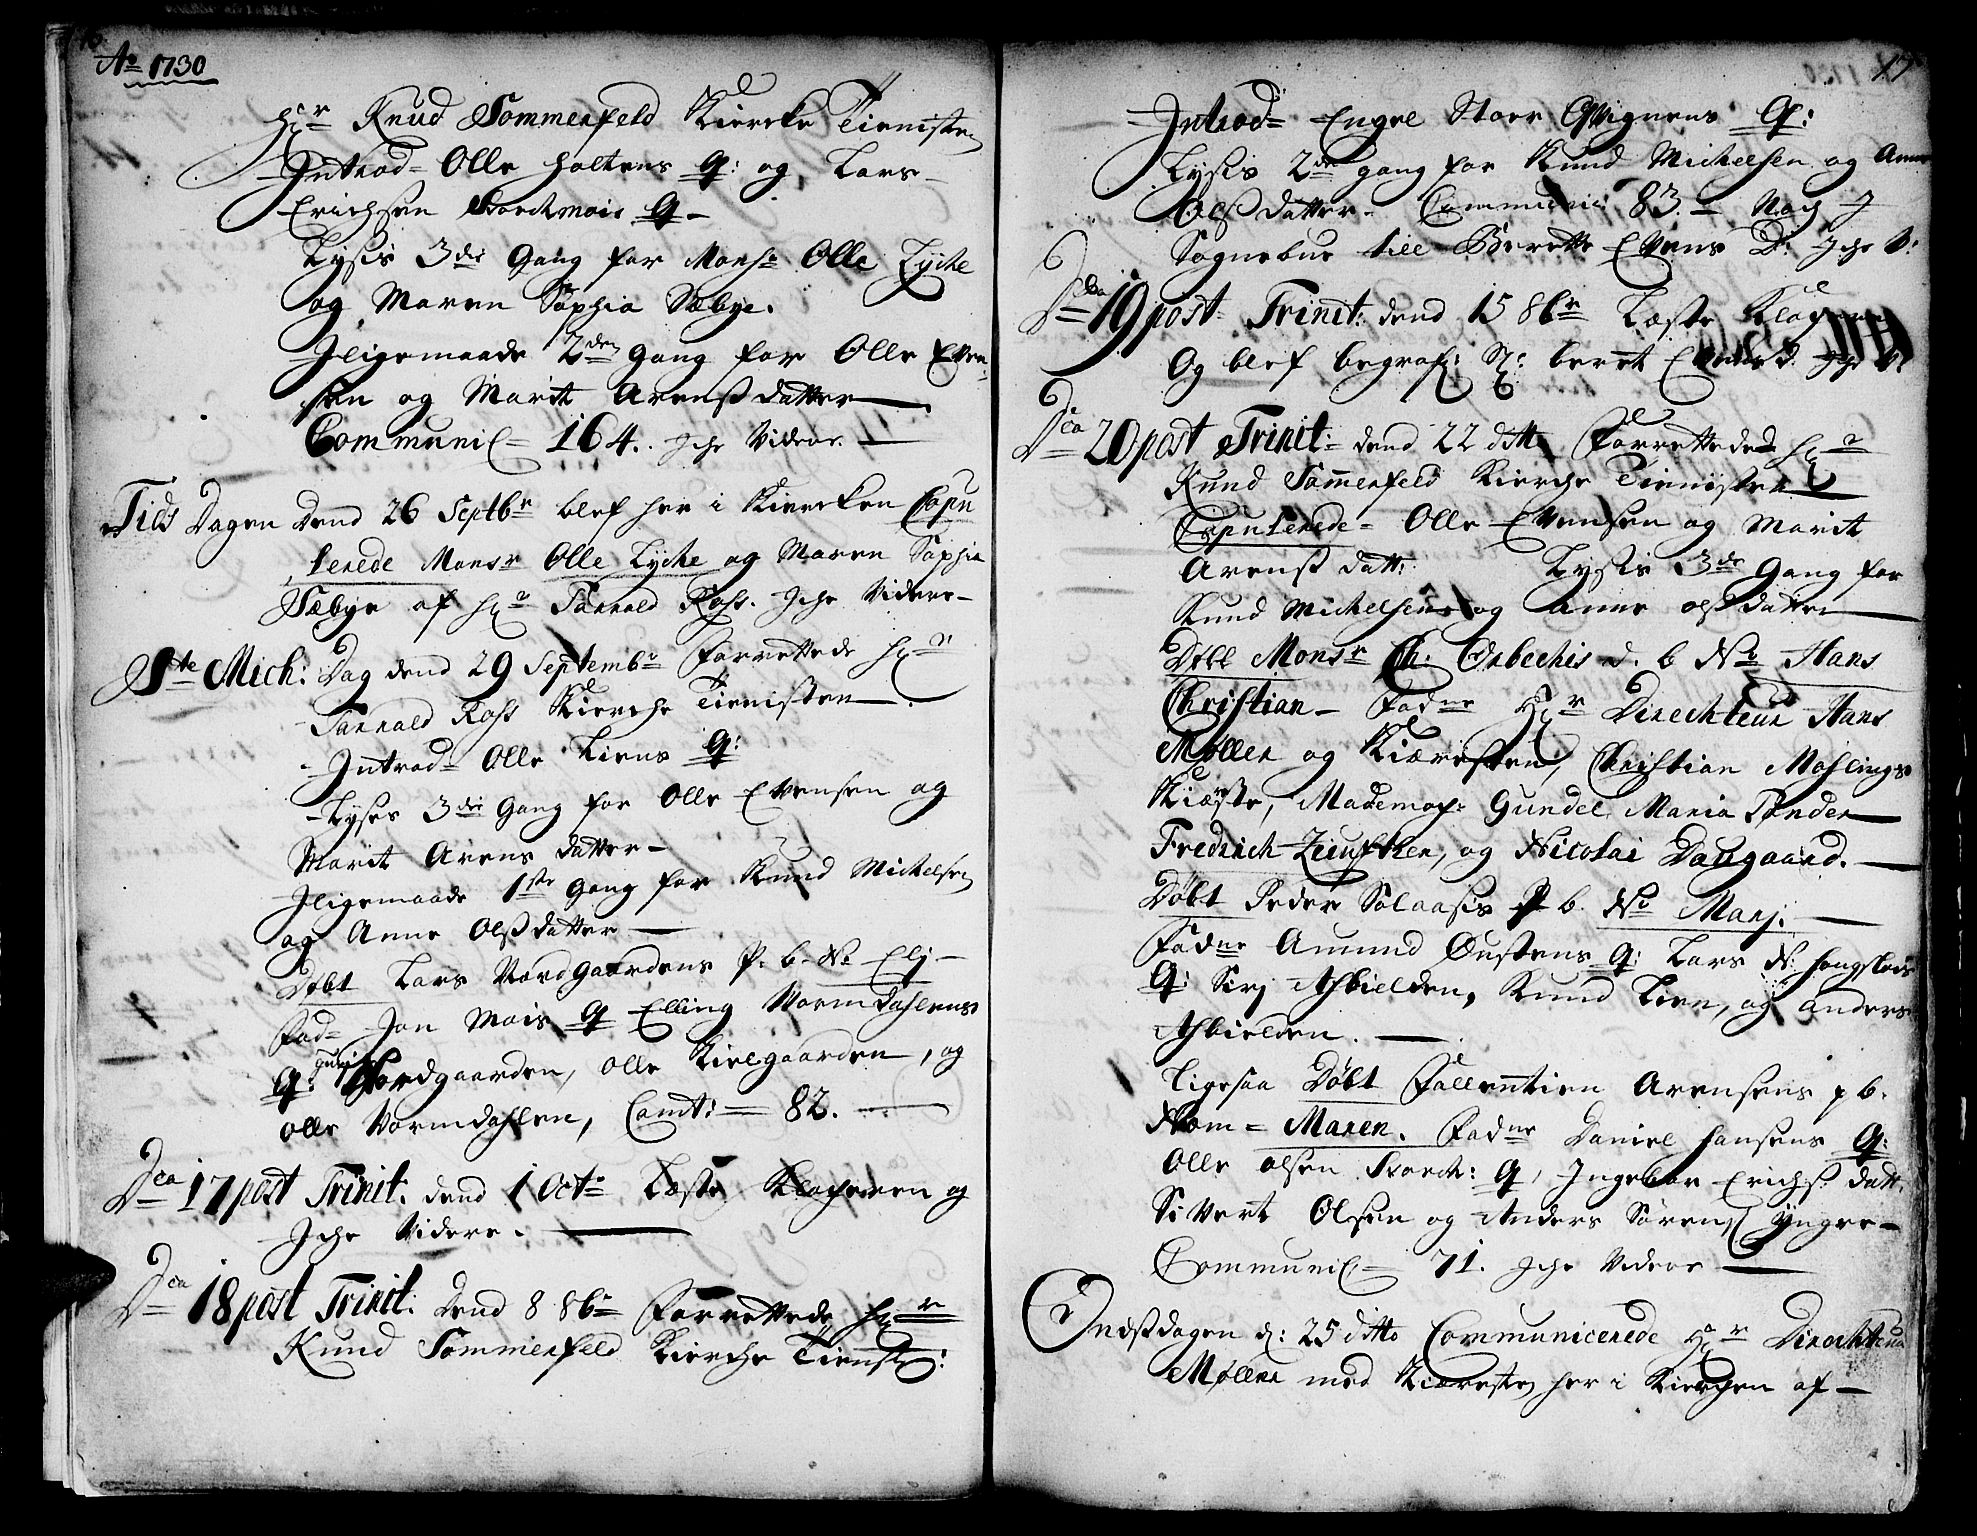 Ao 1730
Hr Knud Sommerfeld Kiercke Tienisten
Introd= Olle Holtens Q: og Lars
Erichsen Storchmois Q
Lysis 3die Gang for Monsr Olle Lyche
og Maren Sophia Sæbye.
Iligemaade 2den Gang for Olle Even
sen og Marit Arensdatter
Communic= 164. Iche Videre.
Tids Dagen dend 26 Septbr blef her i Kiercken Copu
lerede Monsr Olle Lyche og Maren Sophia
Sæbye af Hr Tarrald Ross. Iche Videre
Ste Mich: Dag dend 29 Septembr Forrettede Hr
Tarrald Ross Kierche Tienisten
Introd= Olle Liens Q:
Lyses 3die Gang for Olle Evensen og
Marit Arens datter
Iligemaade 1ste Gang for Knud Michelsen
og Anne Olsdatter
Døbt Lars Nordgaardens P. b. No Elj
Fad= Jon Mois Q Elling Vormdahlens
Q: Guri Nordgaarden, Olle Kielgaarden, og
Olle Vormdahlen, Comt: = 82.
Dca 17 post Trinit: dend 1 Octr Læste Klocheren og
Iche Videre.
Dca 18 post Trinit: Dend 8 8br Forrettede Hr
Knud Sommerfeld Kierche Tienst:
17
Introd= Engel Stoer Qvignens Q:
Lysis 2den gang for Knud Michelsen og Anne
Olsdatter. Communic: 83. Nog I
Sognebue till Berette Evens D: Iche V:
Dca 19 post Trinit: dend 15 8br Læste Klocheren
Og blef begraf: Sl: beret Evens d. Iche V:
Dca 20 post Trinit: dend 22 ditto Forrettede Hr
Knud Sommerfeld Kierche Tienisten
Copulerede Olle Evensen og Marit
Arens datt: Lysis 3die Gang for
Knud Michelsen og Anne Olsdatter
Døbt Monsr Ch: Orbechis d. b No Hans
Christian Fadne Hr Direchteur Hans
Møller og Kiæresten, Christian Moslings
Kiæste, Mademos: Gundel Maria Tønder
Fredrich Zeuften, og Nicolai Daugaard.
Døbt Peder Solaasis P b. No Marj.
Fadne Amund Øustens Q: Lars Hougsleds
Q: Sirj Aasbielden, Knud Lien, og Anders
Aasbielden.
Ligesaa Døbt Fallentien Arensens p b.
Nom= Maren. Fadne Daniel Hansens Q:
Olle Olsen Storch: Q, Ingebor Erichs: datt.
Sivert Olsen og Anders Sørens Yngre
Communic= 71. Iche Videre
Onsdagen d: 25 ditto Communicerede Hr Direchteur
Møller med Kiæresten her i Kierchen af